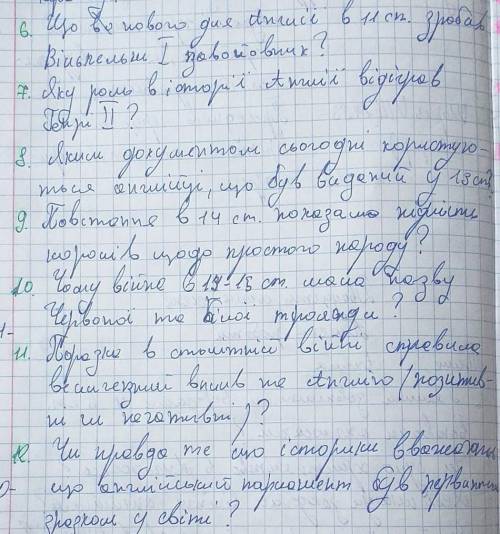 6. Що за нового для Англії в 11 ст. зробив
Вільгельм I завойовник?
7. Яку роль в історії Англії відіграв
Генрі II?
8. Яким документом сьогодні користую-
ться англійці, що був виданий у 13 ст?
9. Повстання в 14 ст. показало підлість
королів щодо простого народу?
10. Чому війна в 14-15 ст. мала назву
Червоної та Білої троянди?
11. Поразка в столітній війні справила
величезний вплив на Англію (позитив-
ні чи негативні)?
12. Чи правда те що історики вважають
що англійський парламент був первинним
зразком у світі?